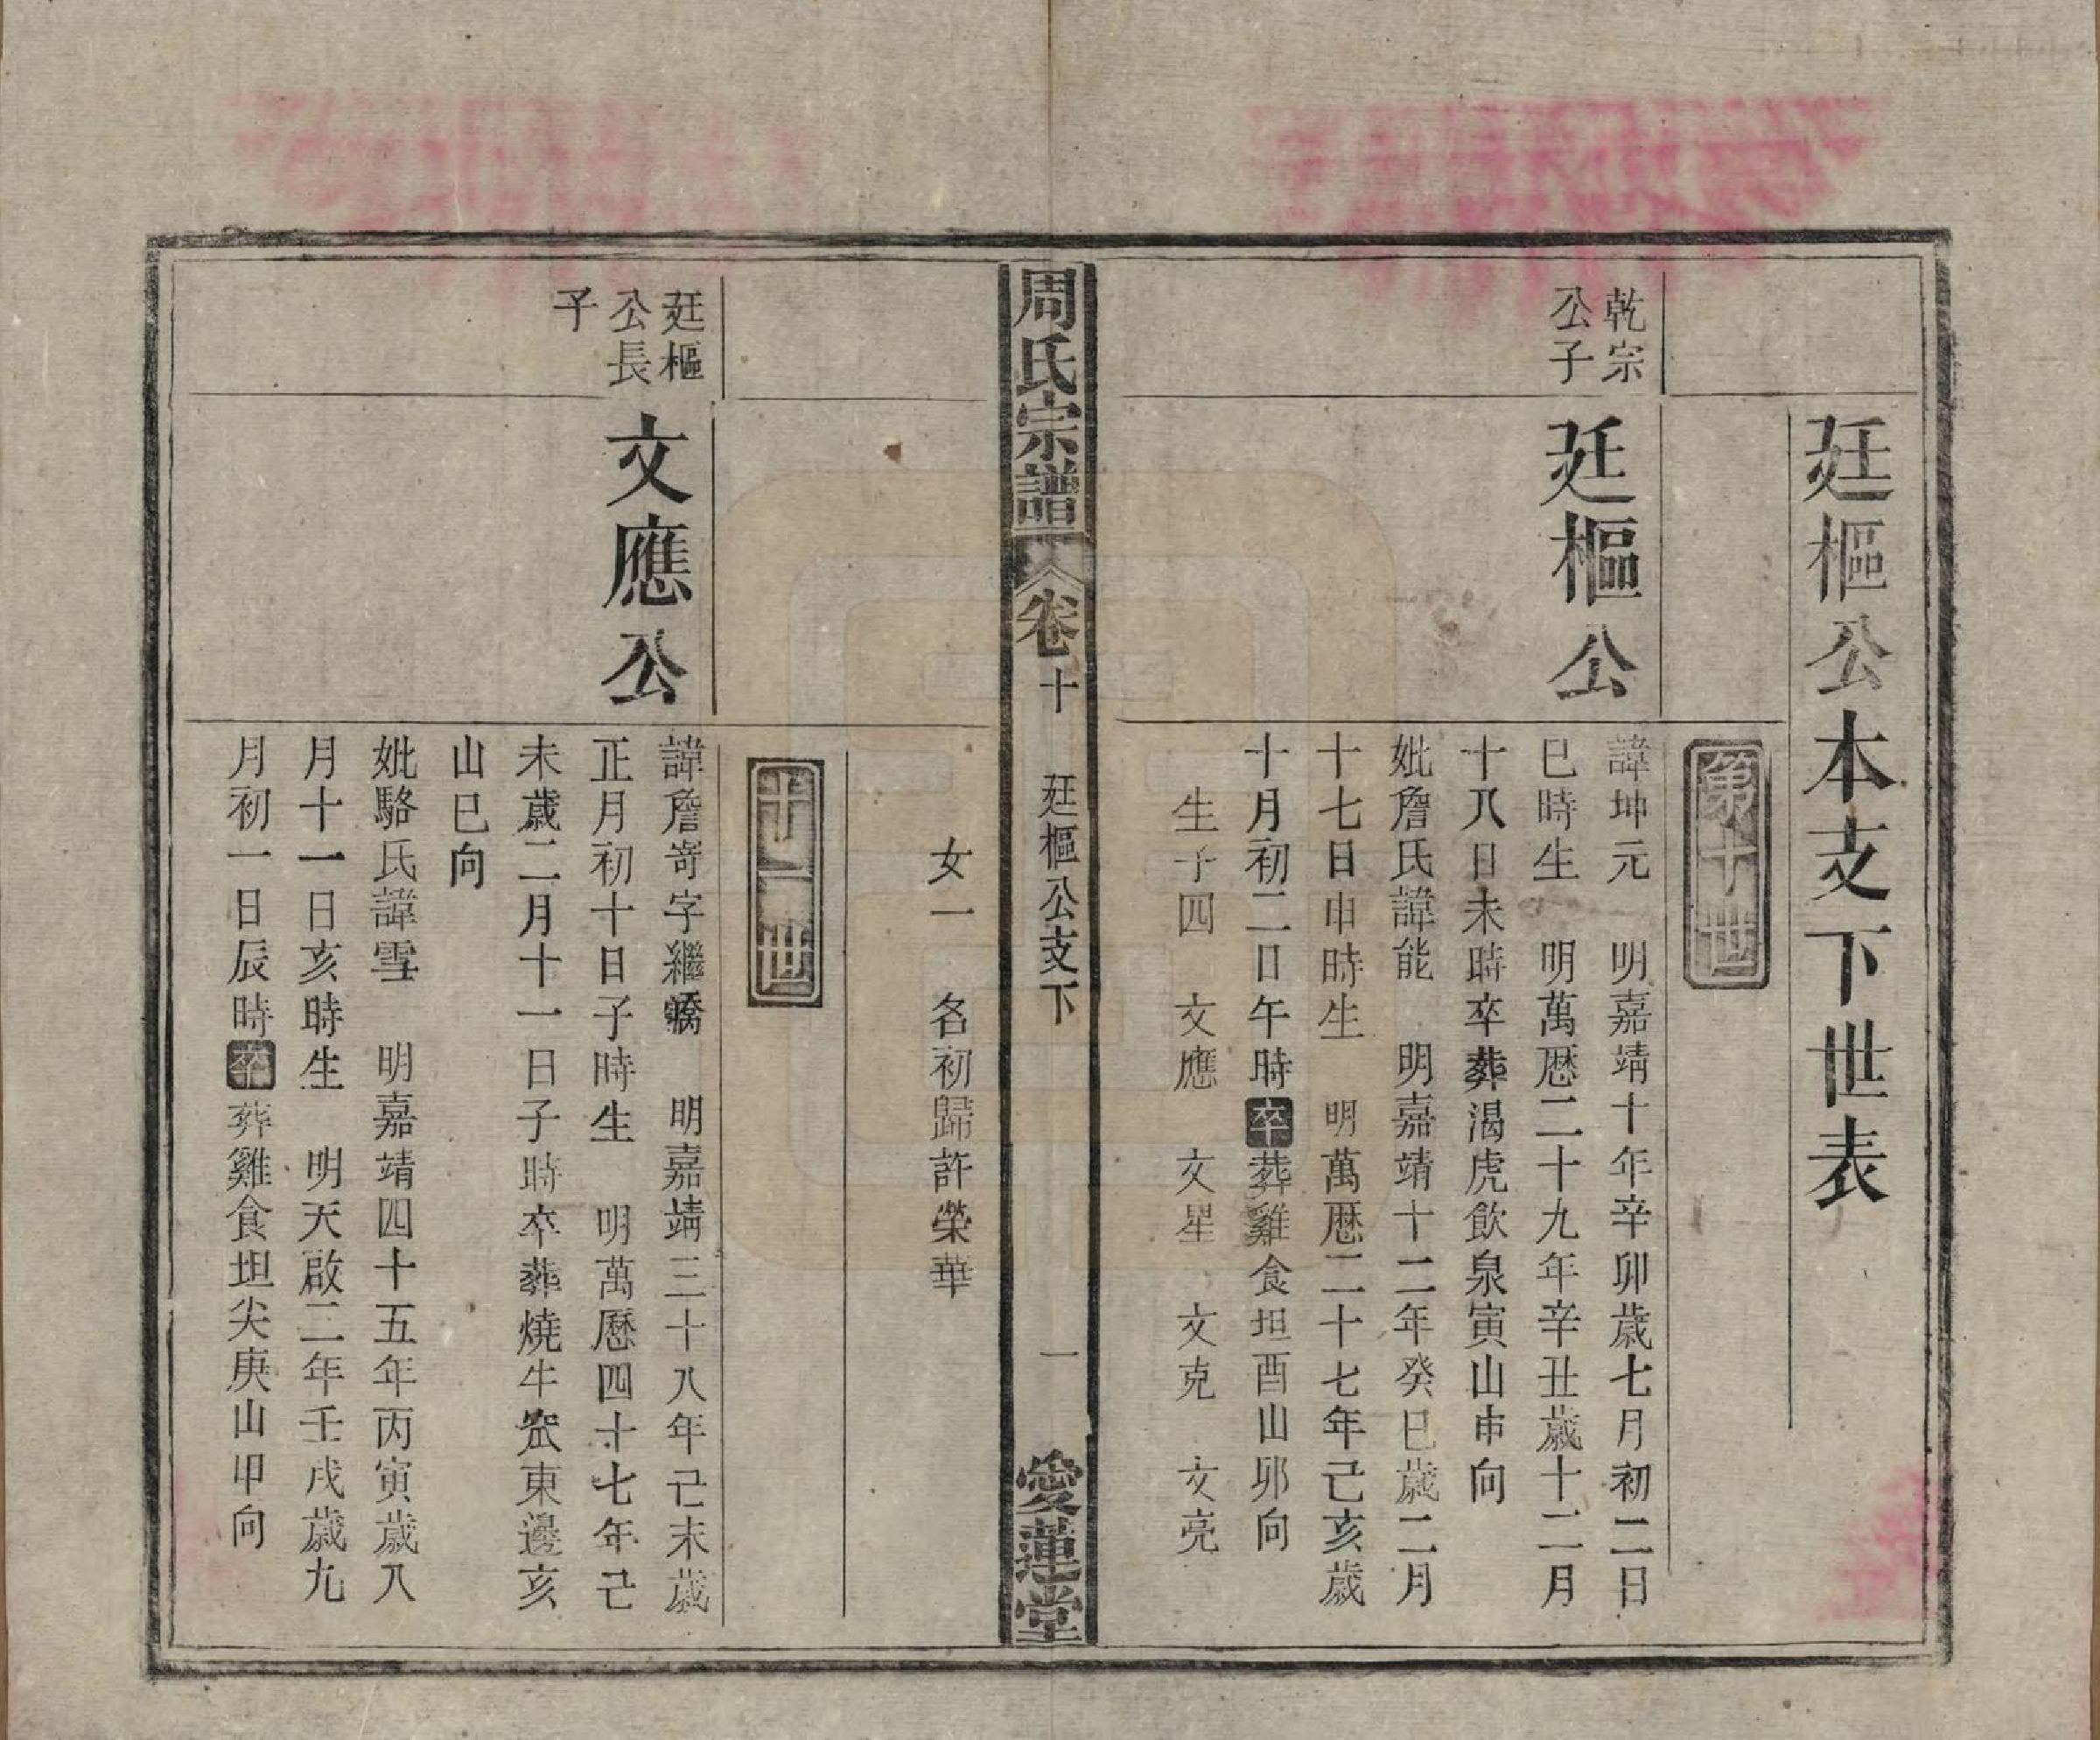 廷樞公本支下世表
第十世
乾宗
公子
廷樞公
諱坤元　明嘉靖十年辛卯歲七月初二日
巳時生　明萬厯二十九年辛丑歲十二月
十八日未時卒葬渴虎飲泉寅山申向
妣詹氏諱能　明嘉靖十二年癸巳歲二月
十七日申時生　明萬厯二十七年己亥歲
十月初二日午時卒葬雞食坦酉山卯向
生子四　文應　文星　文克　文亮
周氏宗譜
卷十
廷樞公支下
一
愛蓮堂
女一　名初歸許榮華
十一世
廷樞
公長
子
文應公
諱詹嵜字繼　明嘉靖三十八年己未歲
正月初十日子時生　明萬厯四十七年己
未歲二月十一日子時卒葬燒牛東邊亥
山巳向
妣駱氏諱雪　明嘉靖四十五年丙寅歲八
月十一日亥時生　明天啟二年壬戌歲九
月初一日辰時卒葬雞食坦尖庚山甲向